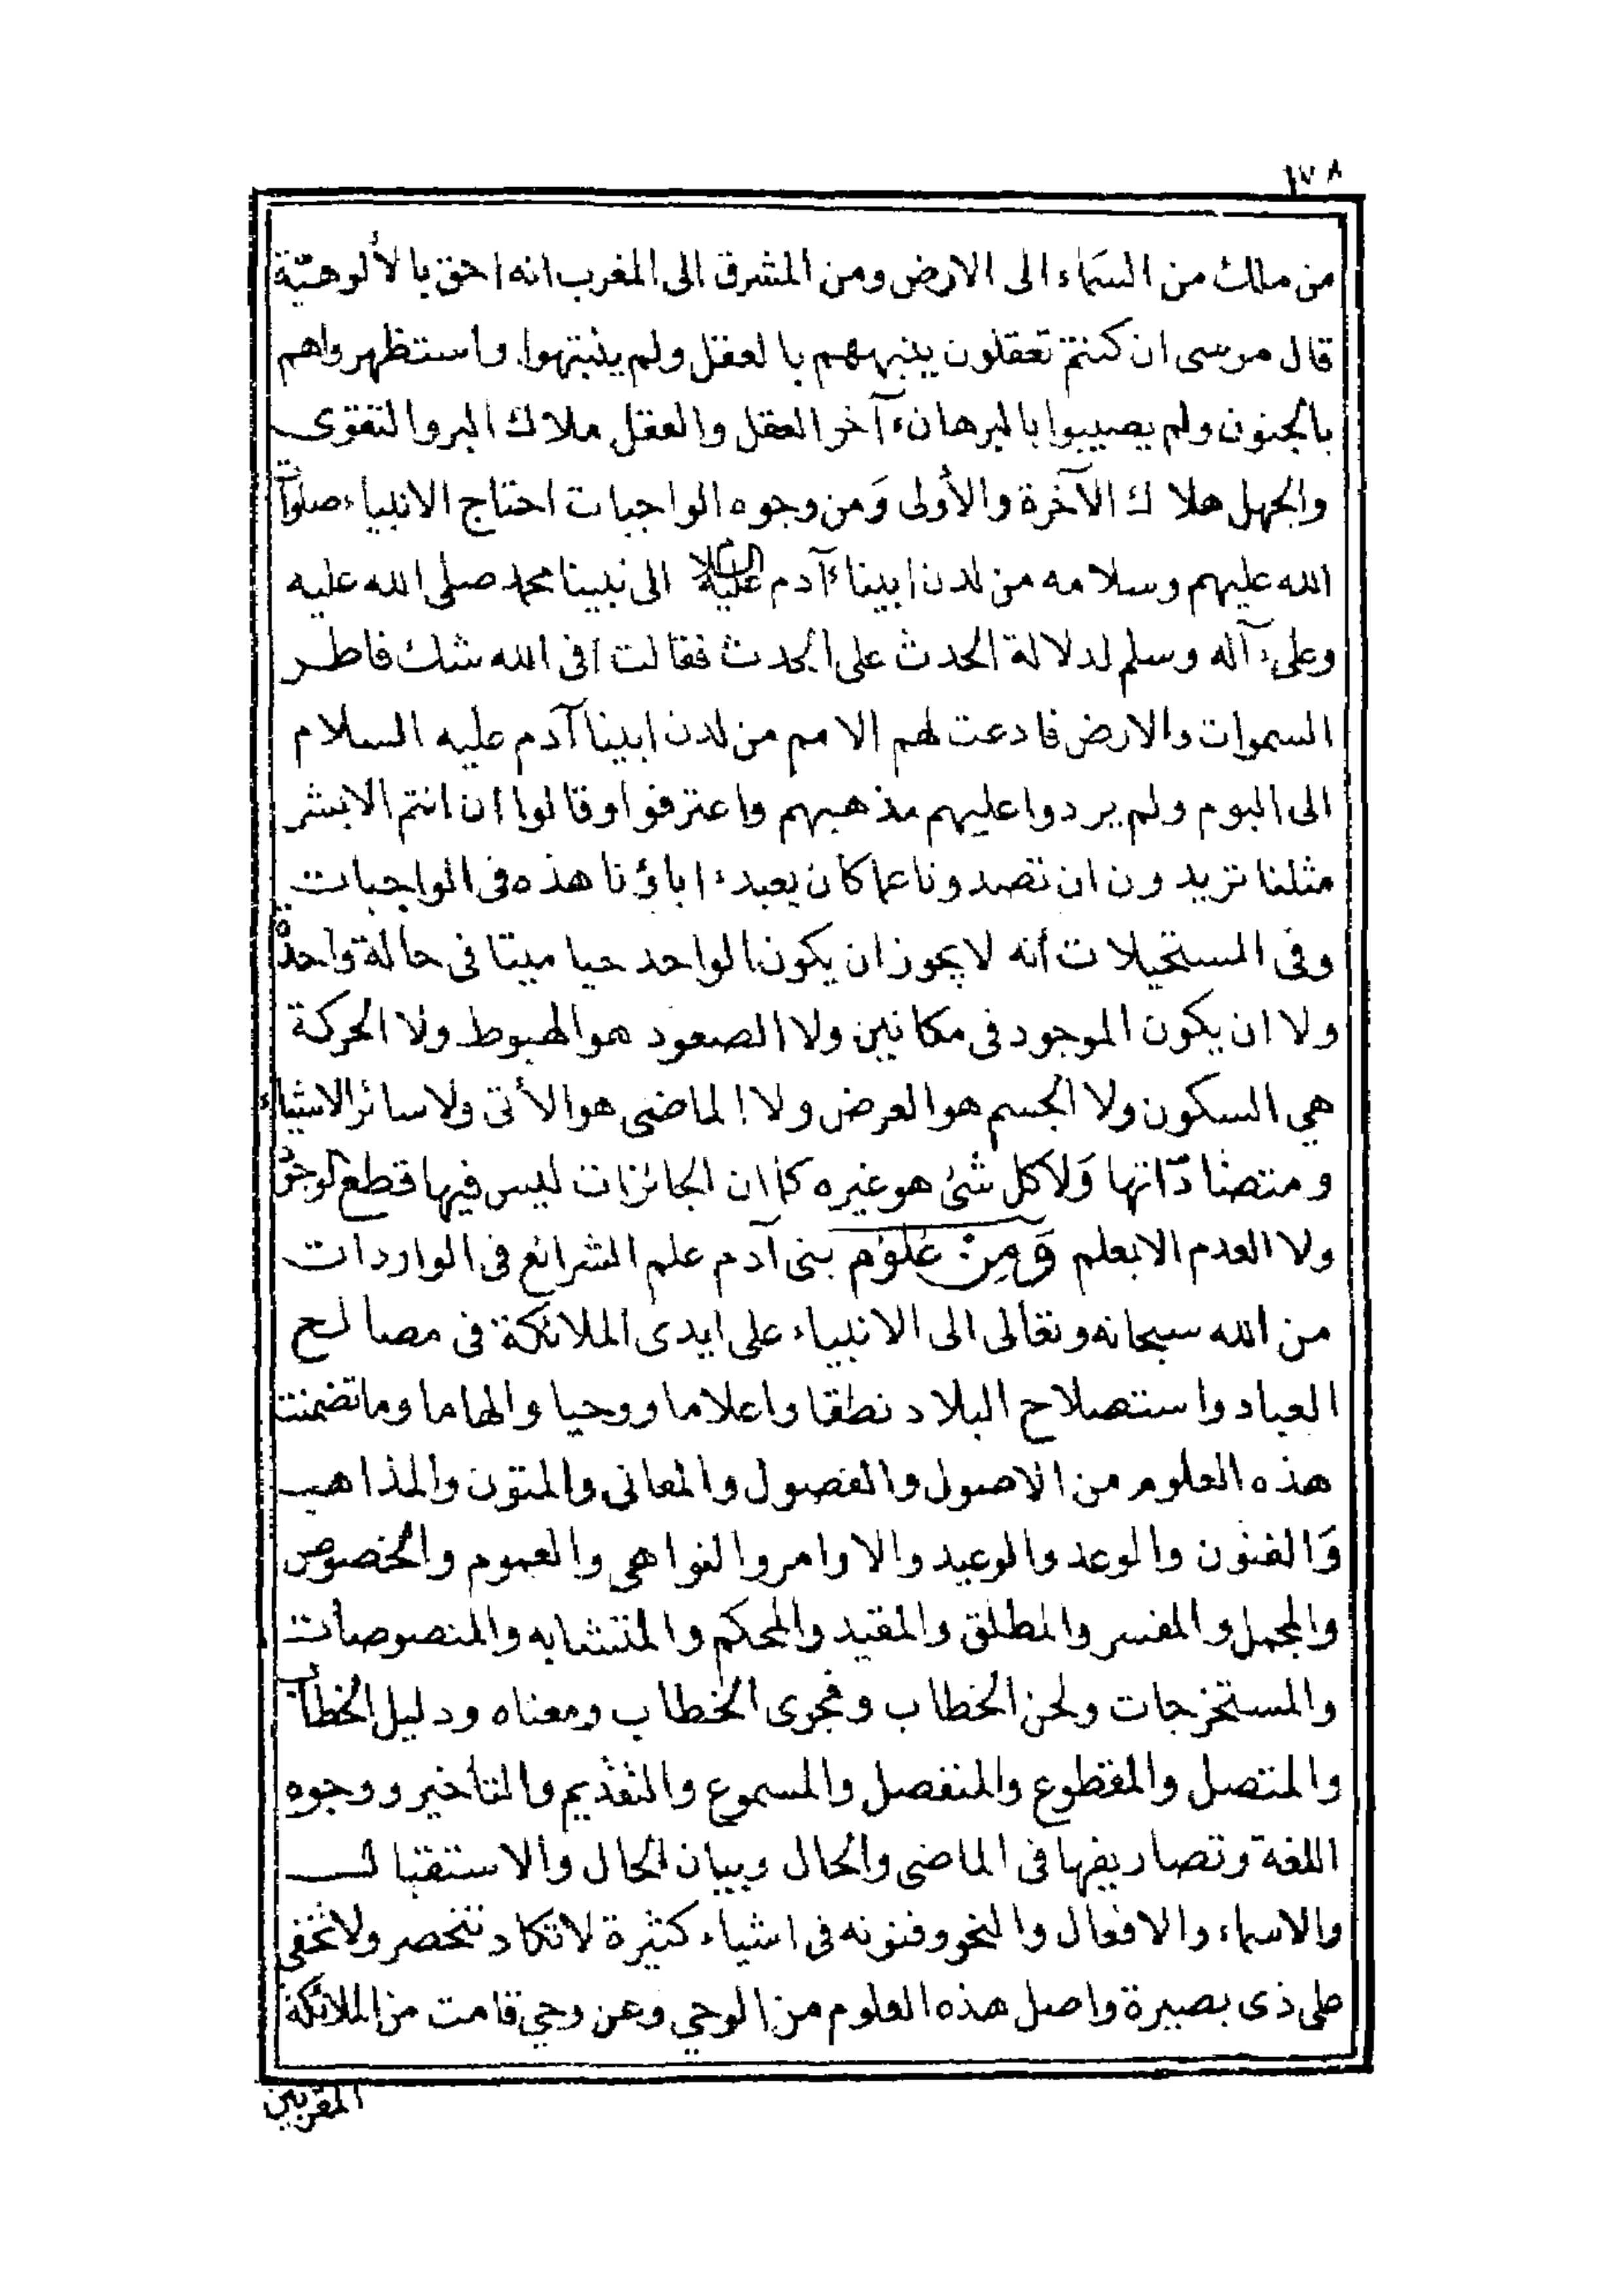 ١٧٨
من ملك من السماء الى الارض ومن المشرق الى المغرب انه احق بالألوهيّة
قال موسى ان كنتم تعقلون ينبههم بالعقل ولم ينبتهوا واستظهرواهم
بالجنون ولم يصيبوا بالبرهان ءآخر العقل والعقل ملاك البر والتقوى
والجهل هلاك الآخرة والأولى وَمن وجوه الواجبات احتاج الانبياء صلوات
الله عليهم وسلامه من لدن ابينا ءآدم عليه السلام الى نبينا محمد صلى الله عليه
وعلى ءآله وسلم لدلالة الحدث على المحدث فقالت أفى الله شك فاطر
السموات والارض فادعت لهم الامم من لدن ابينا آدم عليه السلام
الى اليوم ولم يردوا عليهم مذهبهم واعترفوا وقالوا ان انتم الا بشر
مثلنا تريدون ان تصدونا عما كان يعبد ءاباؤنا هذه فى الواجبات
وفى المستحيلات أنه لا يجوز ان يكون الواحد حيا ميتا فى حالة واحدة
ولا ان يكون الموجود فى مكانين ولا الصعود هو الهبوط ولا الحركة
هي السكون ولا الجسم هو العرض ولا الماضى هو الأتى ولا سائر الاشياء
ومتضادّاتها وَلا كل شئ هو غيره كما ان الجائزات ليس فيها قطع لوجود
ولا العدم الا بعلم وَمِنْ عُلوُم بنى آدم علم الشرائع فى الواردات
من الله سبحانه وتعالى الى الانبياء على ايدى الملائكة فى مصالح
العباد واستصلاح البلاد نطقا واعلاما ووحيا والهاما وما تضمنت
هذه العلوم من الاصول والفصول والمعانى والمتون والمذاهب
وَالفنون والوعد والوعيد والاوامر والنواهى والعموم والخصوص
والمجمل والمفسر والمطلق والمقيد والمحكم والمتشابه والمنصوصات
والمستخرجات ولحن الخطاب وفحوى الخطاب ومعناه ودليل الخطاب
والمتصل والمقطوع والمنفصل والمسموع والتقديم والتأخير ووجوه
اللغة وتصاريفها فى الماضى والحال وبيان الحال والاستقبال
والاسماء والافعال والنحو وفنونه فى اشياء كثيرة لا تكاد تنحصر ولا تخفى
على ذى بصيرة واصل هذه العلوم من الوحي وعن وحي قامت من الملائكة
المقربين